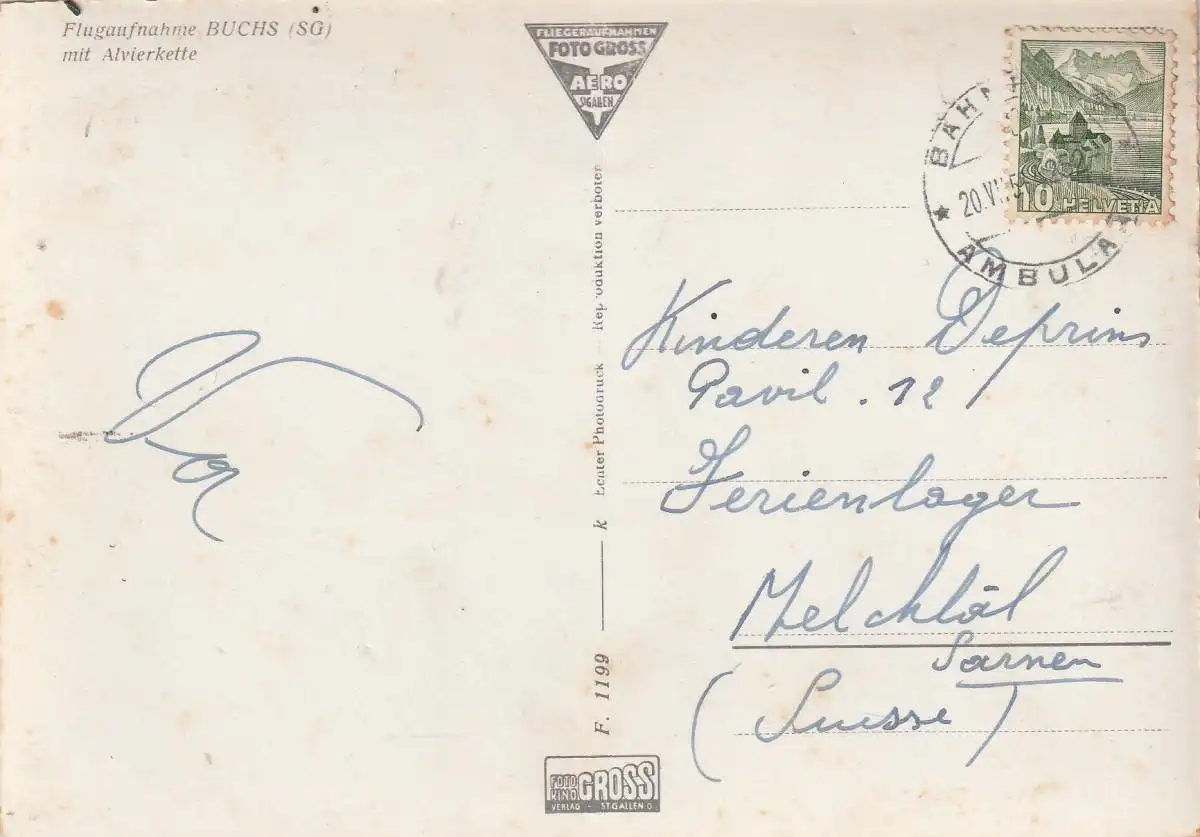 Flugaufnahme BUCHS (SG)
mit Alvierkette
FLIEGERAUFNAHMEN
FOTO GROSS
AERO
ST.GALLEN
10 HELVETIA
20.VII.5
AMBULA
k Echter Photodruck Reproduktion verboten
F. 1199
Kinderen Deprins
Pavil. 12
Ferienlager
Melchtäl
Sarnen
(Suisse)
FOTO
KINO GROSS
VERLAG - ST.GALLEN O.